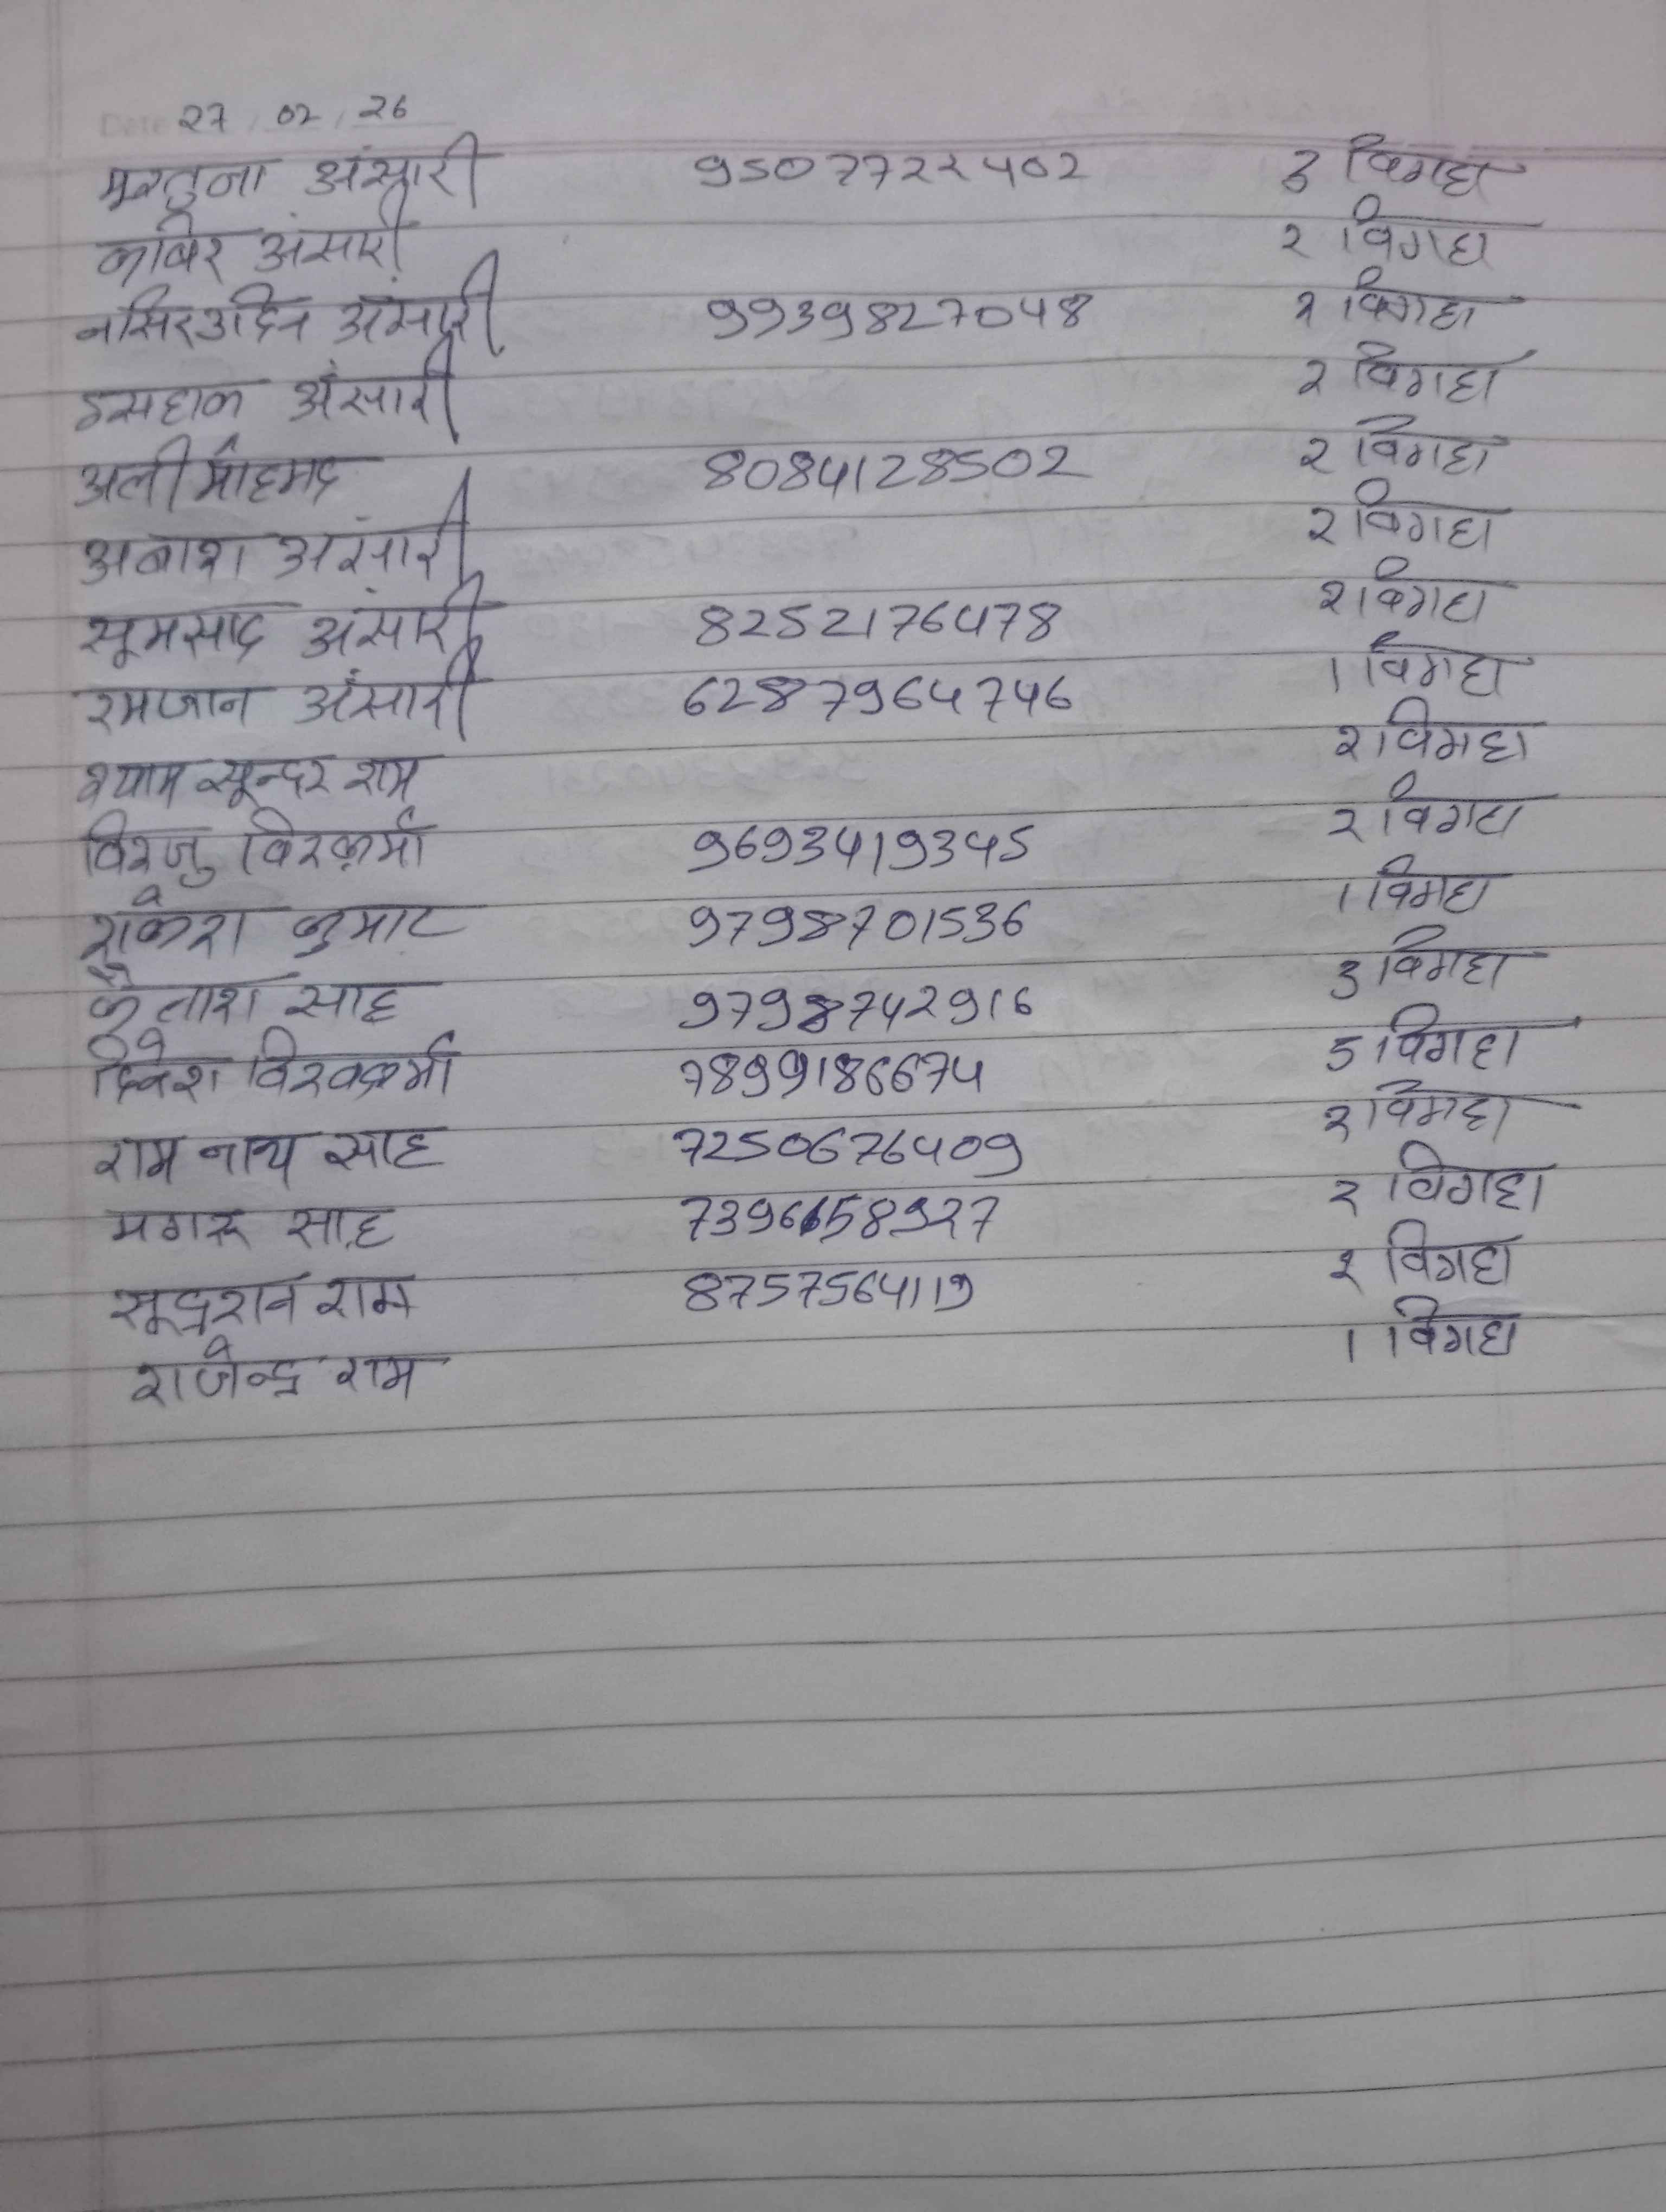 Date 27 / 02 / 26
मुरतुजा अंसारी 9507722402 3 विगहा
कबिर अंसारी २ विगहा
नसिरउदिन अंसारी 9939827048 २ विगहा
इसहाक अंसारी २ विगहा
अली मोहमद 8084128502 २ विगहा
अंसारी २ विगहा
सूमसाद अंसारी 8252176478 २ विगहा
रमजान अंसारी 6287964746 1 विगहा
श्याम सून्दर राम २ विगहा
विरजु विश्कर्मा 9693419345 २ विगहा
राकेश कुमार 9798701536 1 विगहा
कैलाश साह 9798742916 3 विगहा
दिनेश विश्वकर्मा 7899186674 5 विगहा
राम नाथ साह 7250676409 २ विगहा
मगरु साह 7396658927 २ विगहा
सूद्रशन राम 8757564119 २ विगहा
राजेन्द्र राम 1 विगहा